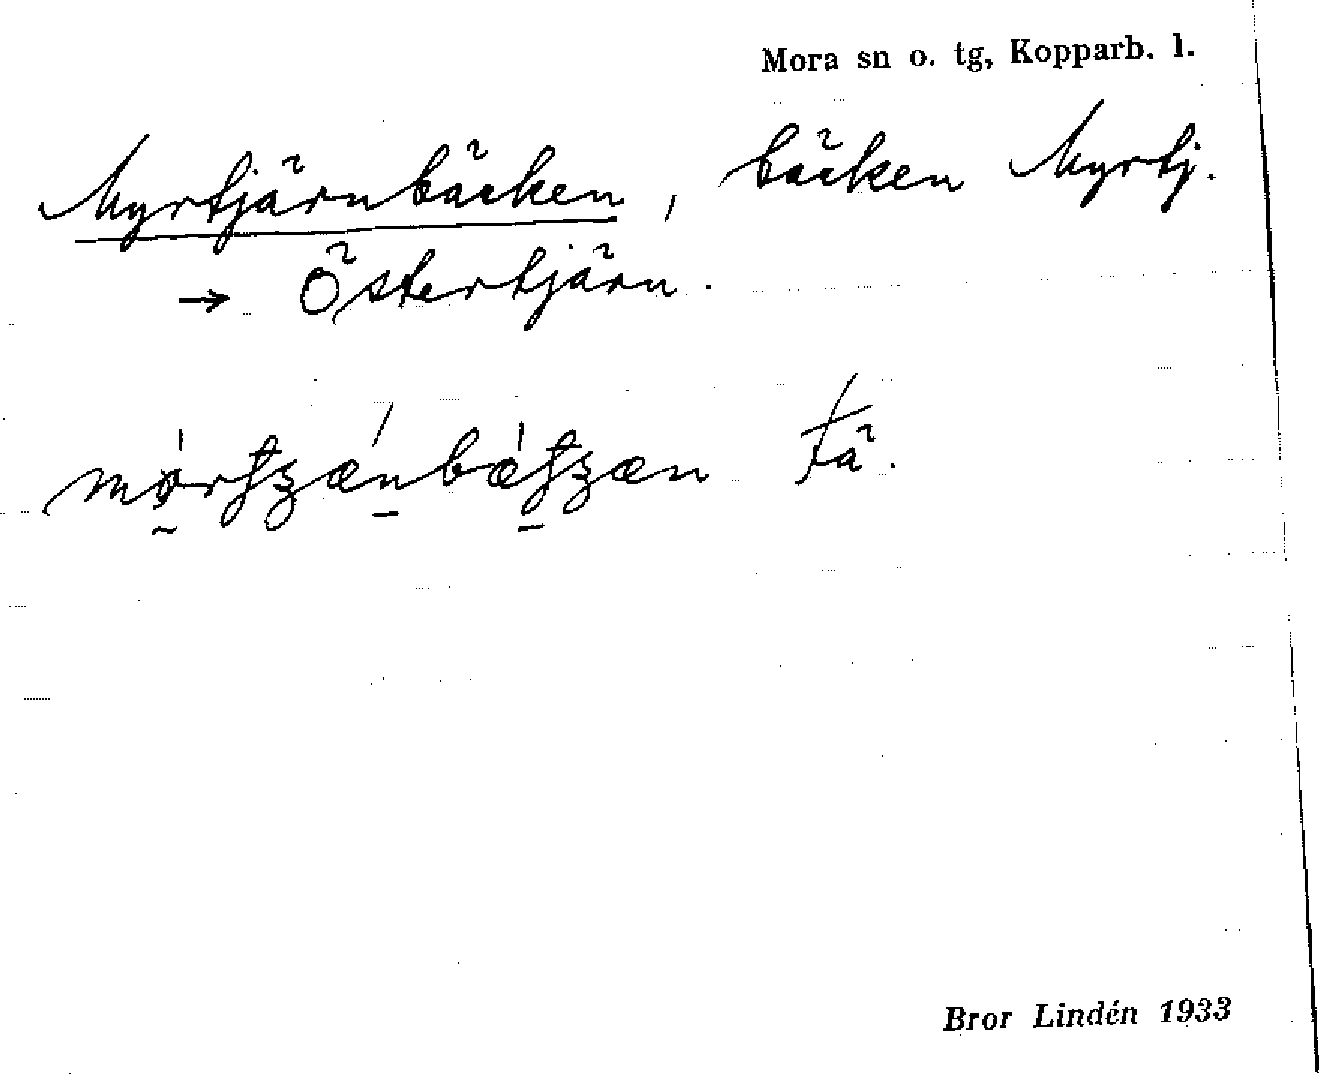 Mora sn o. tg, Kopparb. l.
Myrtjärnbäcken, bäcken Myrtj.
→ Östertjärn.
Bror Lindén 1933